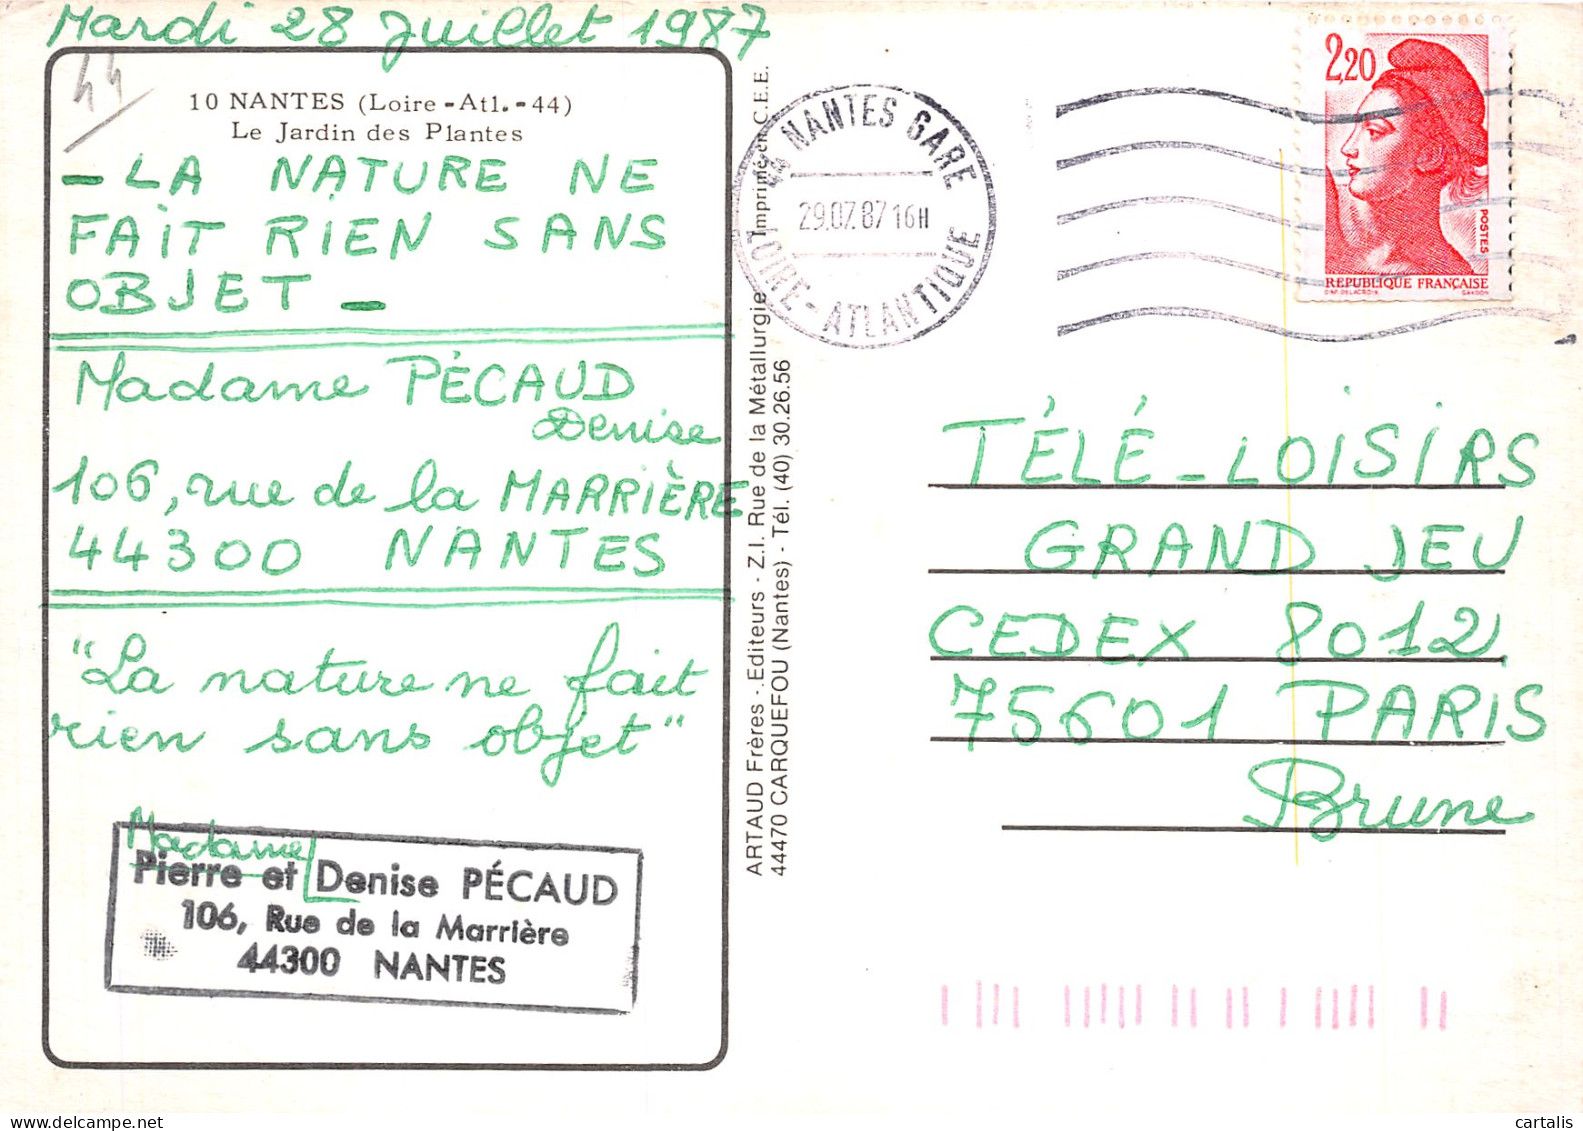 Mardi 28 Juillet 1987
44
10 NANTES (Loire-Atl.-44)
Le Jardin des Plantes
- LA NATURE NE
FAIT RIEN SANS
OBJET -
Madame PÉCAUD
Denise
106, rue de la MARRIÈRE
44300 NANTES
"La nature ne fait
rien sans objet"
Madame
Pierre et Denise PÉCAUD
106, Rue de la Marrière
44300 NANTES
ARTAUD Frères - Editeurs - Z.I. Rue de la Métallurgie Imprimé en C.E.E.
44470 CARQUEFOU (Nantes) - Tél. (40) 30.26.56
44 NANTES GARE
29.07.87 16H
LOIRE-ATLANTIQUE
2,20
POSTES
RÉPUBLIQUE FRANÇAISE
D'AP. DELACROIX GANDON
TÉLÉ-LOISIRS
GRAND JEU
CEDEX 8012
75601 PARIS
Brune
cartalis